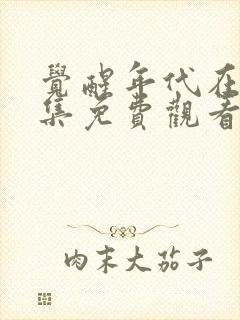 覺醒年代在
集免費觀看
肉末大茄子